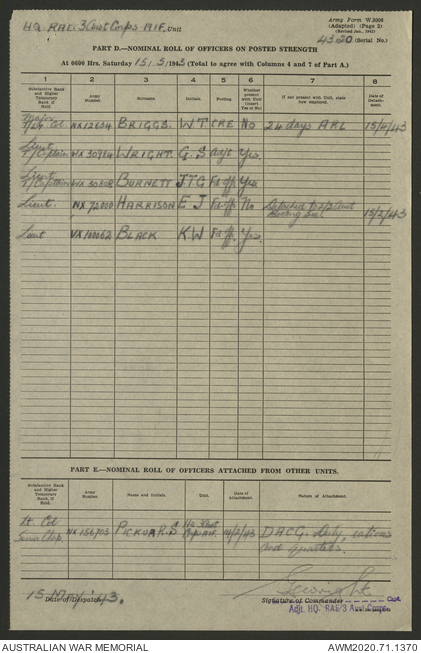 HQ. RAE. 3 Aust Corps AIF. Unit
Army Form W.3008
(Adapted) (Page 2)
(Revised Jan., 1942)
4320 (Serial No.)
PART D.—NOMINAL ROLL OF OFFICERS ON POSTED STRENGTH
At 0600 Hrs. Saturday 15/5/1943 (Total to agree with Columns 4 and 7 of Part A.)
1 2 3 4 5 6 7 8
Substantive Rank and Higher Temporary Rank, if Held. Army Number. Surname Initials. Posting Whether present with Unit (insert Yes or No) If not present with Unit, state how employed. Date of Detachment.
Major
T/Lt Col WX12634 BRIGGS. W T CRE No 24 days ARL 15/4/43
Lieut.
T/Captain WRIGHT. G. S Adjt Yes.
Lieut.
T/Captain BURNETT J.T.G Yes.
Lieut. HARRISON E J No Detached to 15/2/43
Lieut VX100062 BLACK K.W Yes.
PART E.—NOMINAL ROLL OF OFFICERS ATTACHED FROM OTHER UNITS.
Substantive Rank and Higher Temporary Rank, if Held. Army Number. Name and Initials. Unit. Date of Attachment Nature of Attachment.
Lt. Col
NX156703 R.S DACG. Duty, rations
and quarters.
15 May '43.
Date of Despatch
Signature of Commander Capt.
Adjt. HQ. RAE/3 Aust Corps
AUSTRALIAN WAR MEMORIAL
AWM2020.71.1370